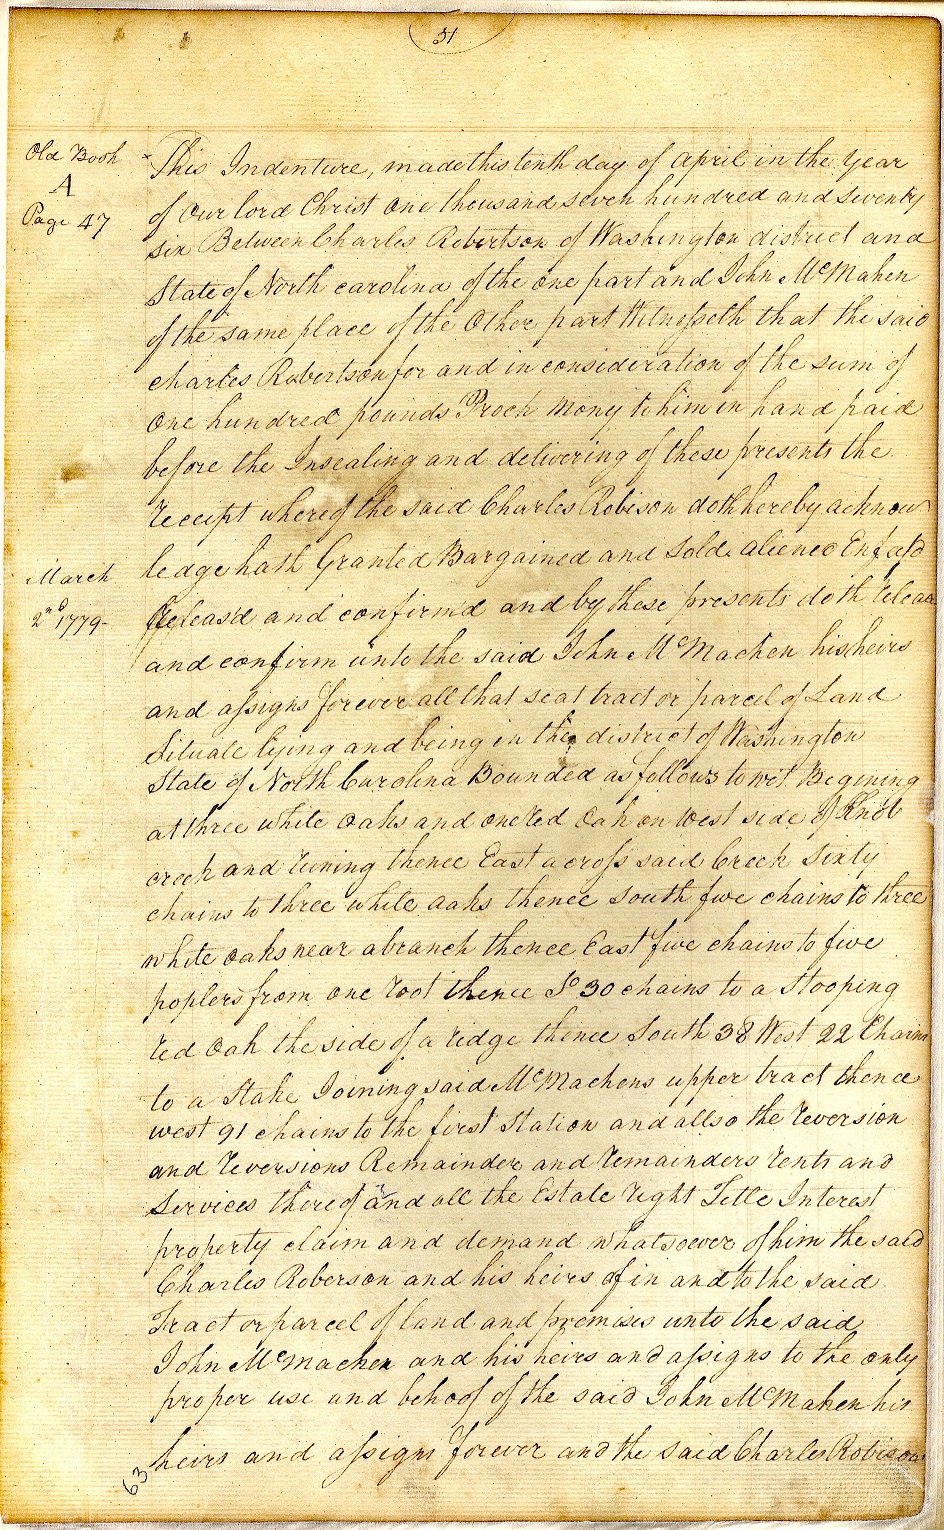 51
Old Book
A
Page 47
This Indenture, made this tenth day of april in the year
of our lord Christ one thousand seven hundred and seventy
six Between Charles Robertson of Washington district and
State of North carolina of the one part and John McMahen
of the same place of the Other part Witnesseth that the said
charles Robertson for and in consideration of the sum of
one hundred pounds Prock mony to him in hand paid
before the Insealing and delivering of these presents the
receipt whereof the said Charles Robison doth hereby acknow
ledge hath Granted Bargained and Sold aliened Enfeofd
March
2nd 1779-
Releasd and confirmd and by these presents doth releas
and confirm unto the said John McMachen his heirs
and assigns forever all that seat tract or parcel of Land
Situate lying and being in the district of Washington
State of North Carolina Bounded as follows to wit Begining
at three white oaks and one red oak on west side of Knob
creek and runing thence East across said Creek Sixty
chains to three white oaks thence South five chains to three
white oaks near a branch thence East five chains to five
poplers from one root thence So 30 chains to a Stooping
red oak the side of a ridge thence South 38 West 22 Chains
to a Stake Joining said McMachens upper tract thence
west 91 chains to the first Station and allso the reversion
and reversions Remainder and remainders rents and
Services thereof and all the Estate right Title Interest
property claim and demand whatsoever of him the said
Charles Roberson and his heirs of in and to the said
Tract or parcel of land and premises unto the said
John McMachen and his heirs and assigns to the only
proper use and behoof of the said John McMahen his
heirs and assigns forever and the said Charles Robison
63